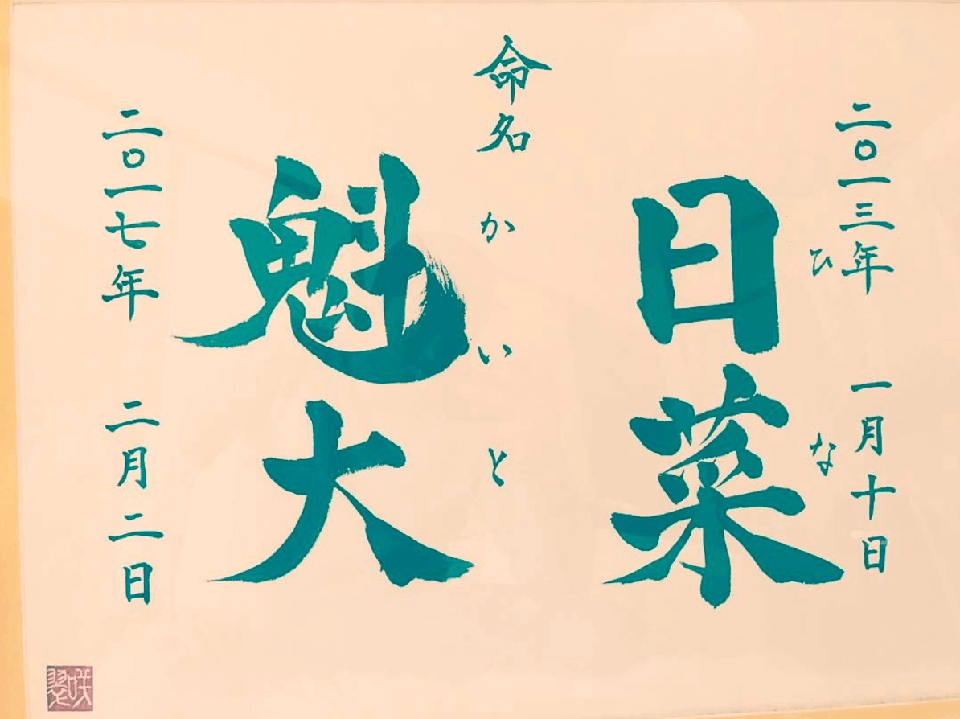 二〇一三年 一月十日
ひな
日菜
命名
かいと
魁大
二〇一七年 二月二日